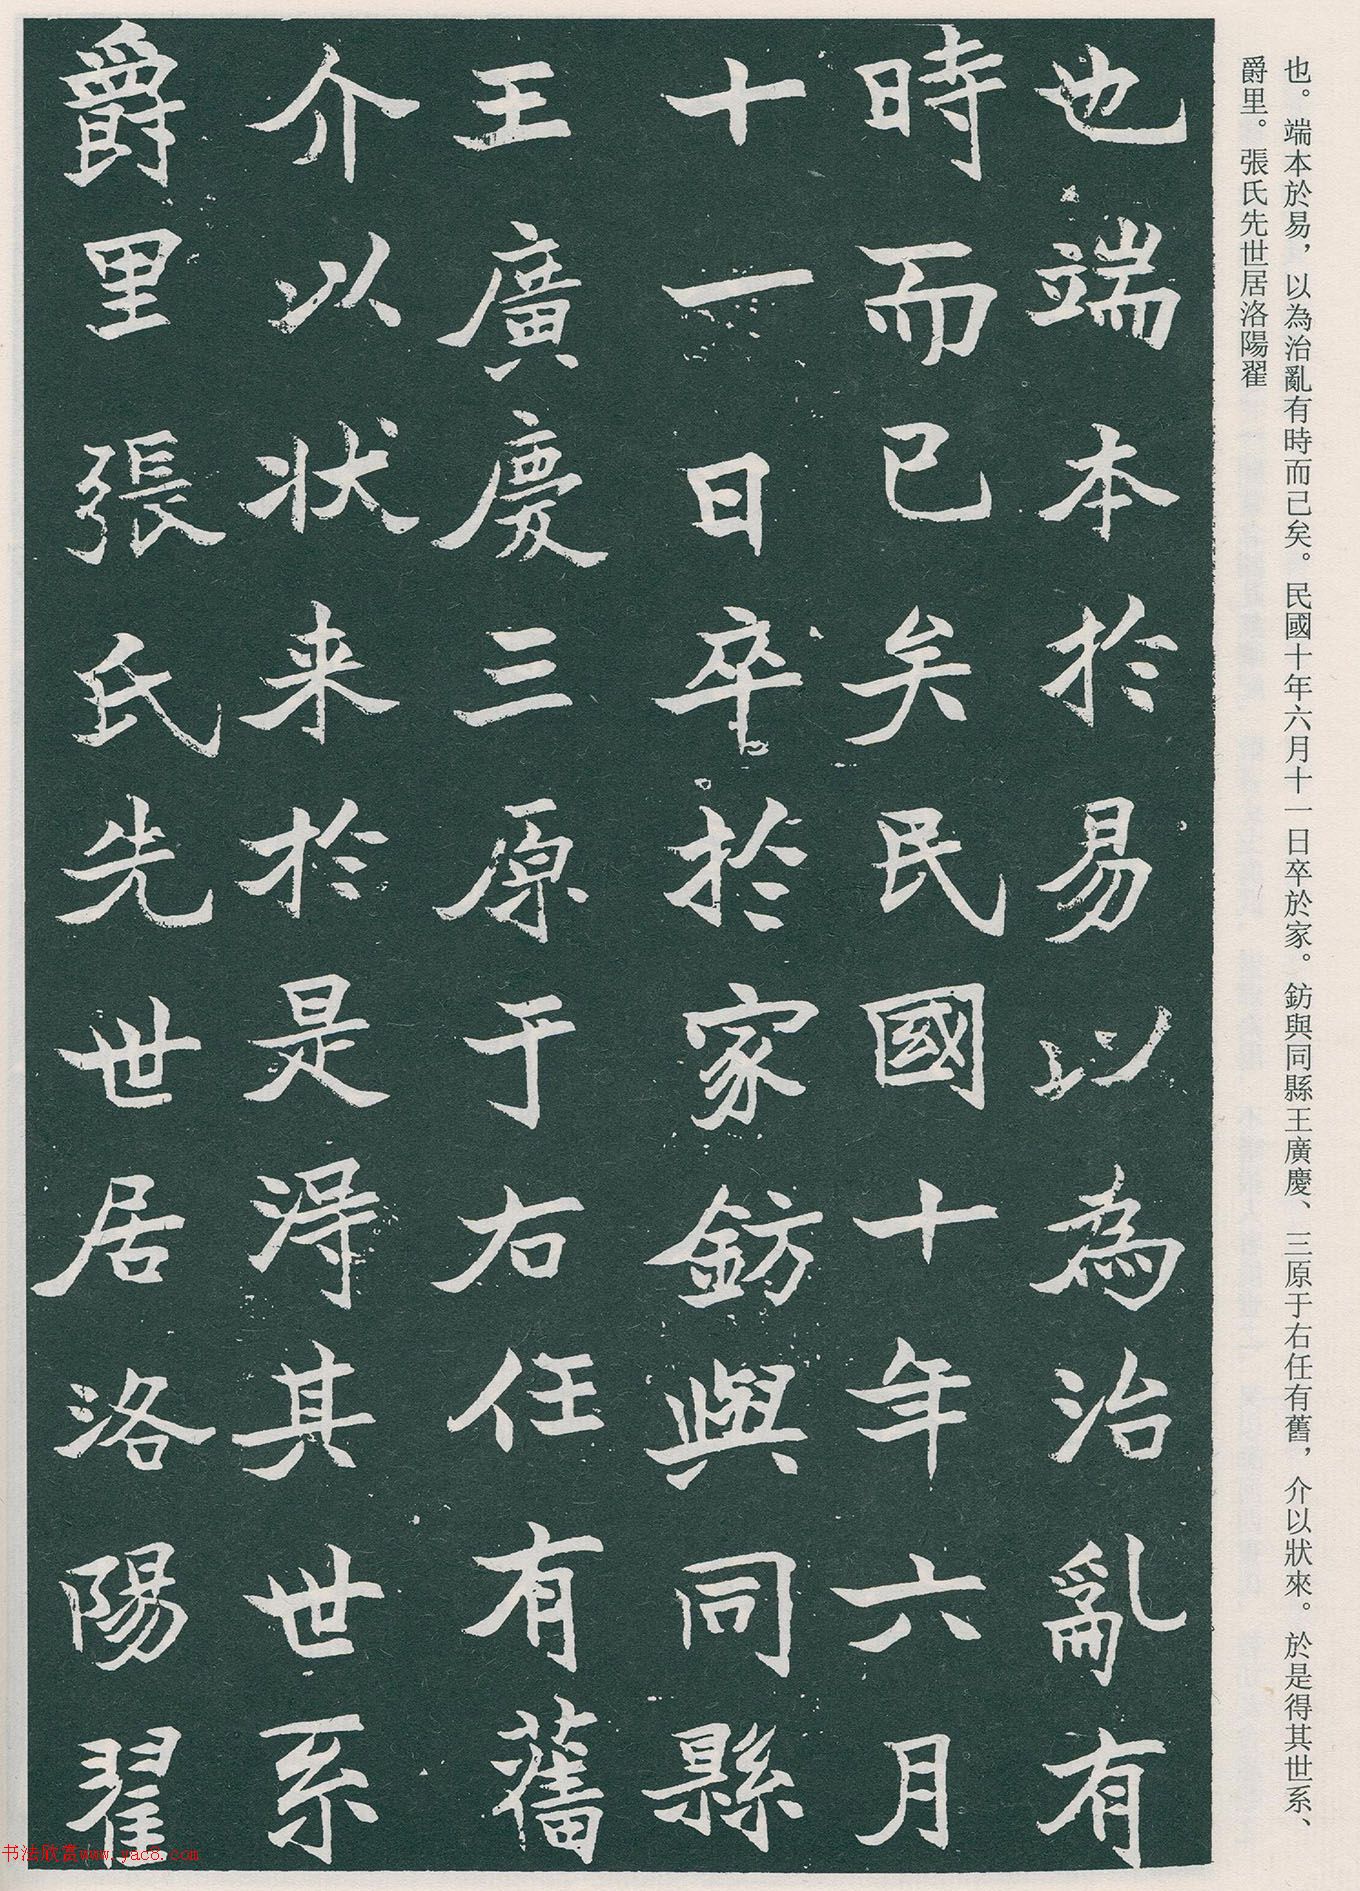 也。端本於易，以為治亂有時而已矣。民國十年六月十一日卒於家。鈁與同縣王廣慶、三原于右任有舊，介以狀來。於是得其世系、
爵里。張氏先世居洛陽翟
也端本於易以為治亂有
時而已矣民國十年六月
十一日卒於家鈁與同縣
王廣慶三原于右任有舊
介以状来於是淂其世系
爵里張氏先世居洛陽翟
书法欣赏www.yac8.com